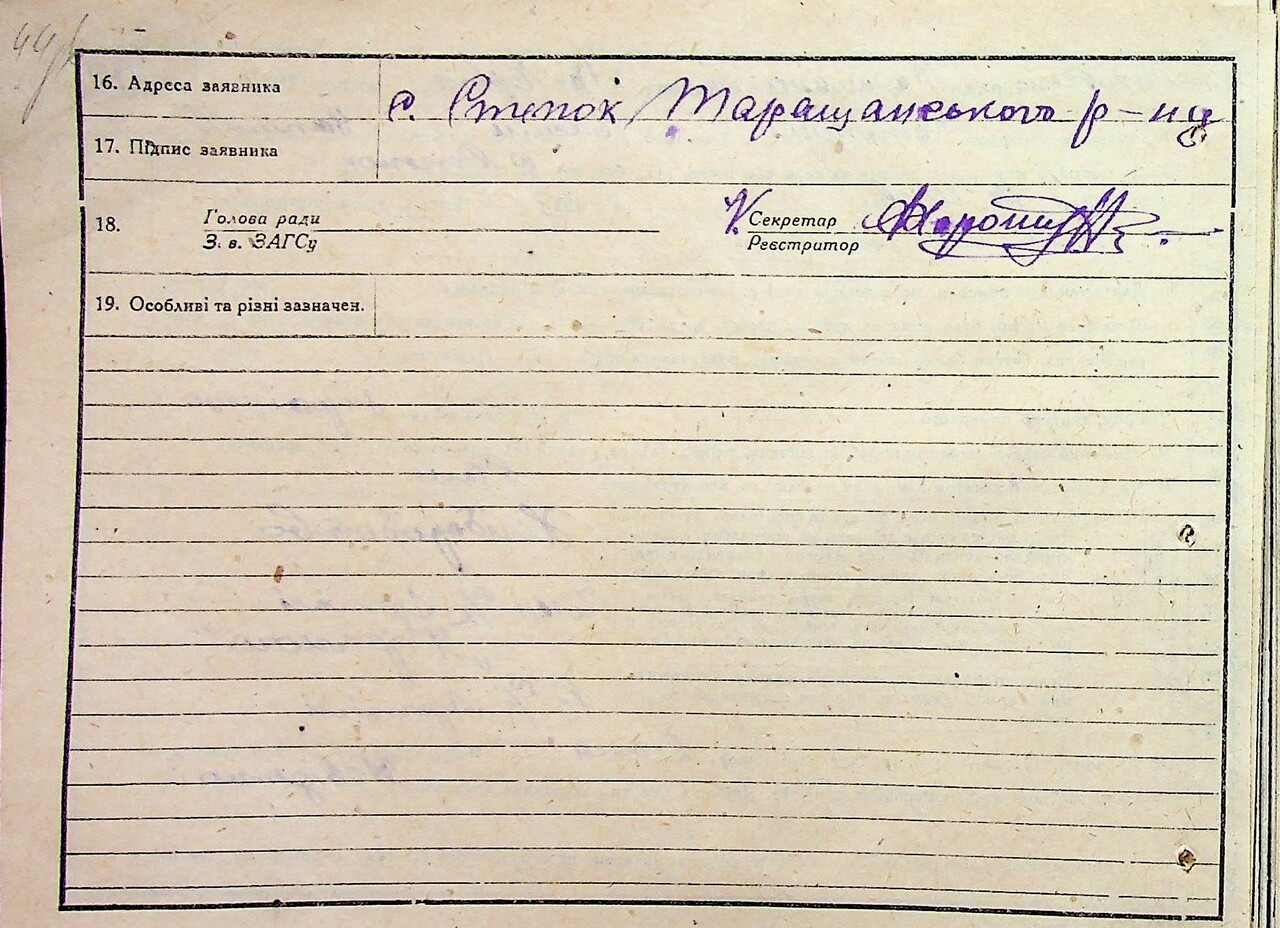 44
16. Адреса заявника
с. Степок Таращанського р-на
17. Підпис заявника
18. Голова ради
З. в. ЗАГСу
Секретар
Реєстратор
19. Особливі та різні зазначен.